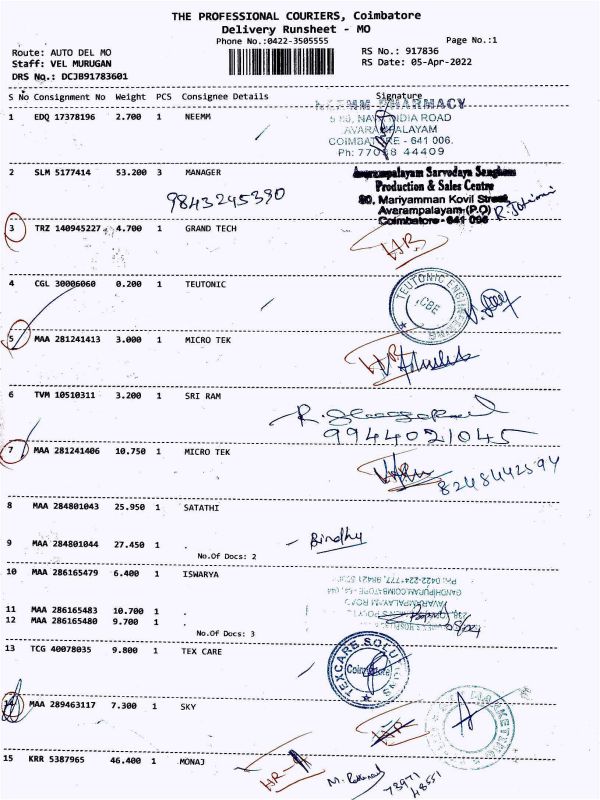 THE PROFESSIONAL COURIERS, Coimbatore
Delivery Runsheet - MO
Phone No.:0422-3505555
Page No.:1
Route: AUTO DEL MO
RS No.: 917836
Staff: VEL MURUGAN
RS Date: 05-Apr-2022
DRS No.: DCJB91783601
S No Consignment No Weight PCS Consignee Details Signature
1 EDQ 17378196 2.700 1 NEEMM
PHARMACY
INDIA ROAD
AVARAMPALAYAM
COIMBATORE - 641 006.
Ph: 77088 44409
2 SLM 5177414 53.200 3 MANAGER
9843245390
Avarampalayam Sarvodaya Sangham
Production & Sales Centre
80, Mariyamman Kovil Street,
Avarampalayam (P.O)
Coimbatore - 641 006
3 TRZ 140945227 4.700 1 GRAND TECH
HR
4 CGL 30006060 0.200 1 TEUTONIC
TEUTONIC ENGINEERING
CBE
5 MAA 281241413 3.000 1 MICRO TEK
6 TVM 10510311 3.200 1 SRI RAM
9944021045
7 MAA 281241406 10.750 1 MICRO TEK
8248442594
8 MAA 284801043 25.950 1 SATATHI
9 MAA 284801044 27.450 1 .
Bindhu
No.Of Docs: 2
10 MAA 286165479 6.400 1 ISWARYA
11 MAA 286165483 10.700 1 .
12 MAA 286165480 9.700 1 .
No.Of Docs: 3
13 TCG 40078035 9.800 1 TEX CARE
TEXCARE SOLUTIONS
Coimbatore
14 MAA 289463117 7.300 1 SKY
MARKETING
15 KRR 5387965 46.400 1 MONAJ
HR
73971
48551